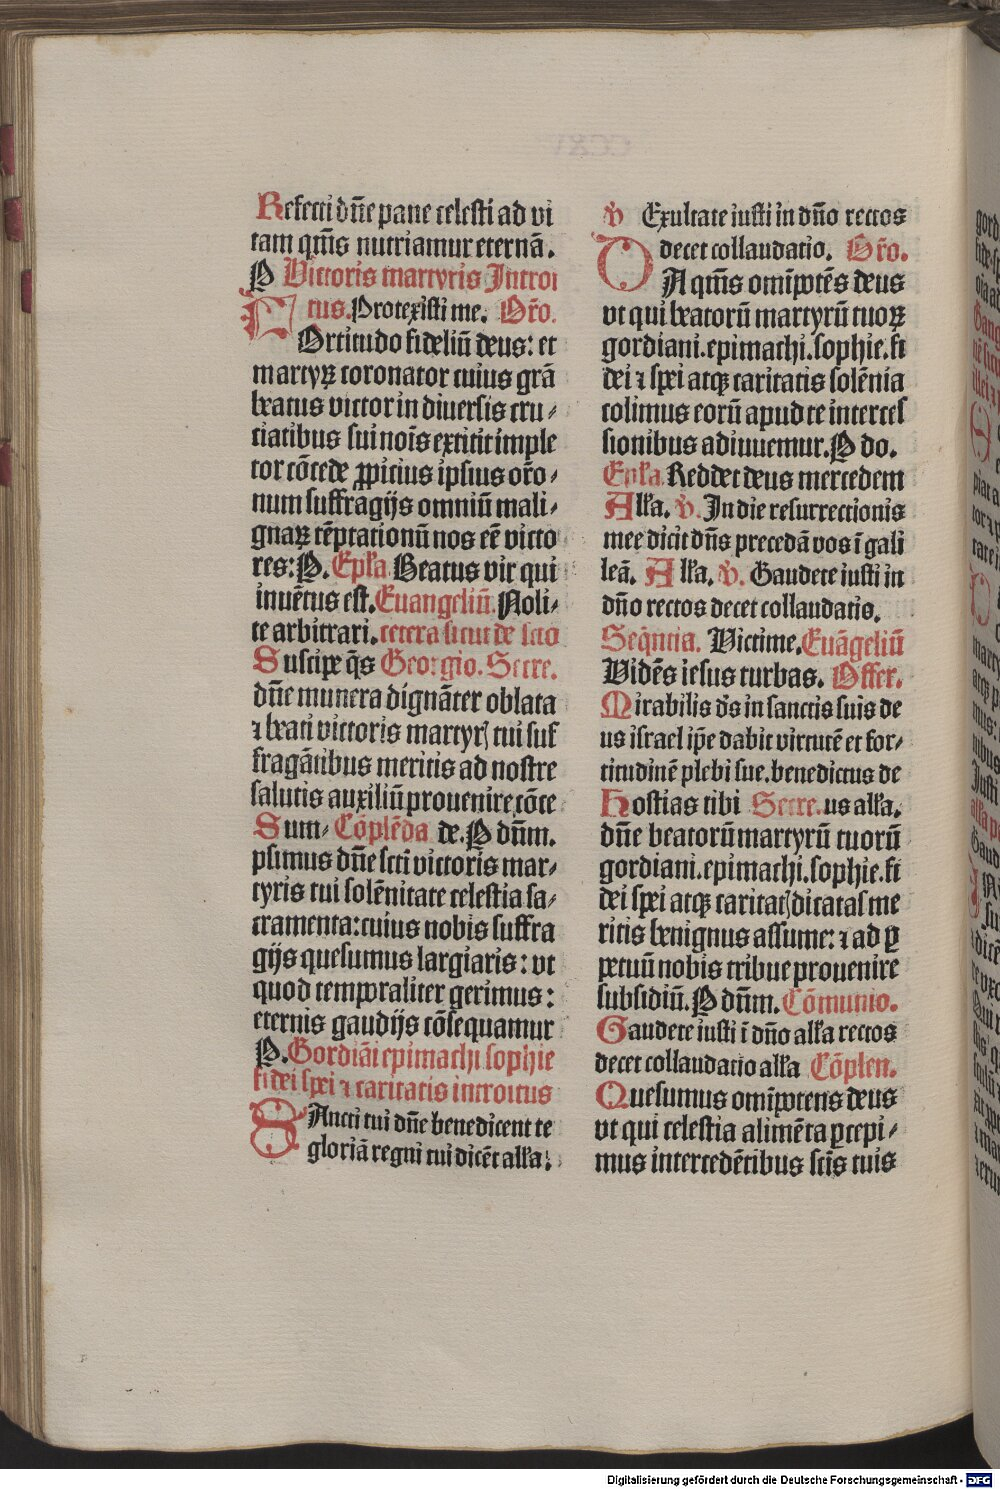 Refecti dn̄e pane celesti ad vi
tam qm̄s nutriamur eternā.
P Victoris martyris Introi
tus. Protexisti me. Or̄o.
FOrtitudo fideliū deus: et
martyꝝ coronator cuius grā
beatus victor in diuersis cru⸗
ciatibus sui nōis extitit imple
tor cōcede ꝓpicius ipsius or̄o⸗
num suffragijs omniū mali⸗
gnaꝝ tēptationū nos eē victo
res: P. Epl̄a. Beatus vir qui
inuētus est. Euangeliū. Noli⸗
te arbitrari. cetera sicut de sco
Suscipe q̄s Georgio. Secre.
dn̄e munera dignāter oblata
⁊ beati victoris martyrꝭ tui suf
fragātibus meritis ad nostre
salutis auxiliū prouenire cōce
Sum⸗ Cōplēda de. P dn̄m.
psimus dn̄e scti victoris mar⸗
tyris tui solēnitate celestia sa⸗
cramenta: cuius nobis suffra
gijs quesumus largiaris: vt
quod temporaliter gerimus:
eternis gaudijs cōsequamur
P. Gordiāi epimachi sophie
fidei spei ⁊ caritatis introitus
SAncti tui dn̄e benedicent te
gloriā regni tui dicēt all̄a.
v̄ Exultate iusti in dn̄o rectos
decet collaudatio. Or̄o.
DA qm̄s omīpotēs deus
vt qui beatorū martyrū tuoꝝ
gordiani.epimachi.sophie.fi
dei ⁊ spei atqꝫ caritatis solēnia
colimus eorū apud te interces
sionibus adiuuemur. P do.
Epl̄a. Reddet deus mercedem
All̄a. v̄. In die resurrectionis
mee dicit dn̄s precedā vos ī gali
leā. All̄a. v̄. Gaudete iusti in
dn̄o rectos decet collaudatio.
Seq̄ntia. Victime. Euāgeliū
Vidēs iesus turbas. Offer.
Mirabilis ds̄ in sanctis suis de
us israel ip̄e dabit virtutē et for⸗
titudinē plebi sue. benedictus de
Hostias tibi Secre. us all̄a.
dn̄e beatorū martyrū tuorū
gordiani.epimachi.sophie.fi
dei spei atqꝫ caritatꝭ dicatas me
ritis benignus assume: ⁊ ad ꝑ
petuū nobis tribue prouenire
subsidiū. P dn̄m. Cōmunio.
Gaudete iusti ī dn̄o all̄a rectos
decet collaudatio all̄a Cōplen.
Quesumus omīpotens deus
vt qui celestia alimēta ꝑcepi⸗
mus intercedētibus sctīs tuis
Digitalisierung gefördert durch die Deutsche Forschungsgemeinschaft - DFG